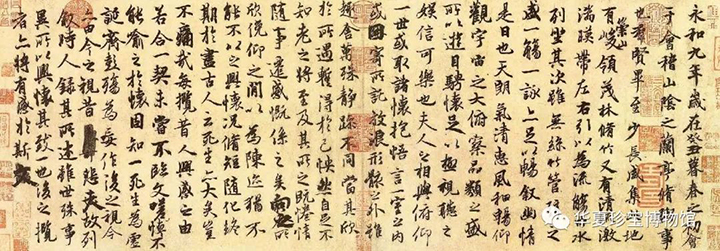 永和九年歲在癸丑暮春之初會
于會稽山陰之蘭亭脩稧事
也群賢畢至少長咸集此地
有崇山峻領茂林脩竹又有清流激
湍暎帶左右引以為流觴曲水
列坐其次雖無絲竹管弦之
盛一觴一詠亦足以暢敘幽情
是日也天朗氣清惠風和暢仰
觀宇宙之大俯察品類之盛
所以遊目騁懷足以極視聽之
娛信可樂也夫人之相與俯仰
一世或取諸懷抱悟言一室之內
或因寄所託放浪形骸之外雖
趣舍萬殊靜躁不同當其欣
於所遇蹔得於己快然自足不
知老之將至及其所之既惓情
隨事遷感慨係之矣向之所
欣俛仰之閒以為陳迹猶不
能不以之興懷況脩短隨化終
期於盡古人云死生亦大矣豈
不痛哉每攬昔人興感之由
若合一契未嘗不臨文嗟悼不
能喻之於懷固知一死生為虛
誕齊彭殤為妄作後之視今
亦由今之視昔悲夫故列
敘時人錄其所述雖世殊事
異所以興懷其致一也後之攬
者亦將有感於斯文
华夏珍宝博物馆